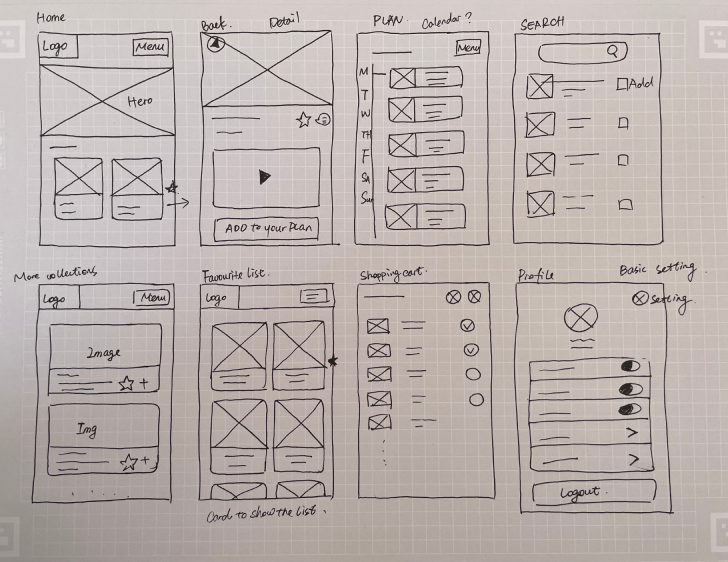 Home
Logo
Menu
Hero
Back.
Detail
ADD to your Plan
PLAN.
Calendar?
Menu
M
T
W
TH
F
Sa
Sun
SEARCH
Add
More collections
Logo
Menu
Image
Img
Favourite list.
Logo
Card to show the list.
Shopping cart.
Profile
Basic setting
Setting
Logout.